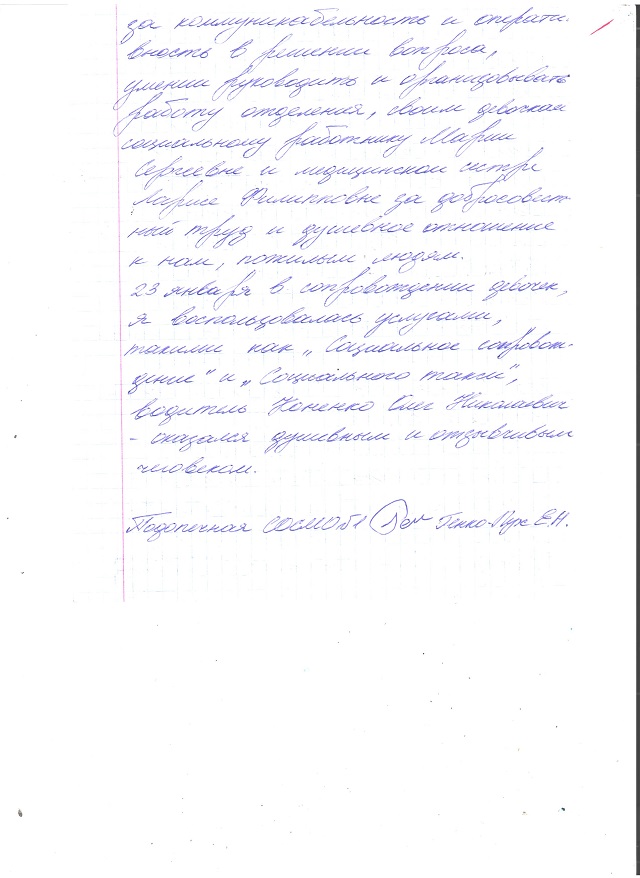 за коммуникабельность и операти-
вность в решении вопроса,
умении руководить и организовывать
работу отделения, своим девочкам
социальному работнику Марии
Сергеевне и медицинской сестре
Ларисе Филипповне за добросовест-
ный труд и душевное отношение
к нам, пожилым людям.
23 января в сопровождении девочек,
я воспользовалась услугами,
такими как „Социальное сопровож-
дение" и „Социального такси",
водитель Коненко Олег Николаевич
- оказался душевным и отзывчивым
человеком.
Подопечная СОСМО №1 Е.Н.